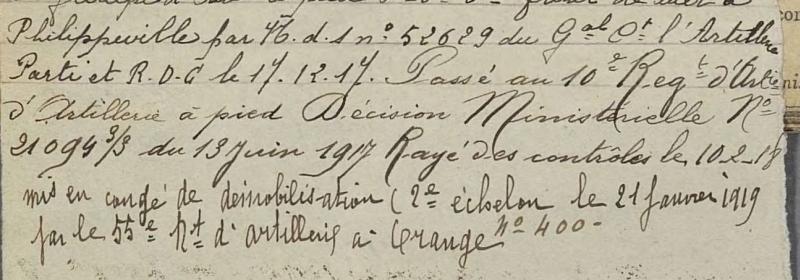 Philippeville par N. d. s n° 52629 du Gal Ct l'Artillerie
Parti et R.D.C le 17.12.17. Passé au 10e Regt d'Artie
d'Artillerie à pied Décision Ministérielle No
21094 3/3 du 13 Juin 1917 Rayé des contrôles le 10-2-18
mis en congé de démobilisation (2e échelon le 21 Janvier 1919
par le 55e Rt d'artillerie à Orange No 400-